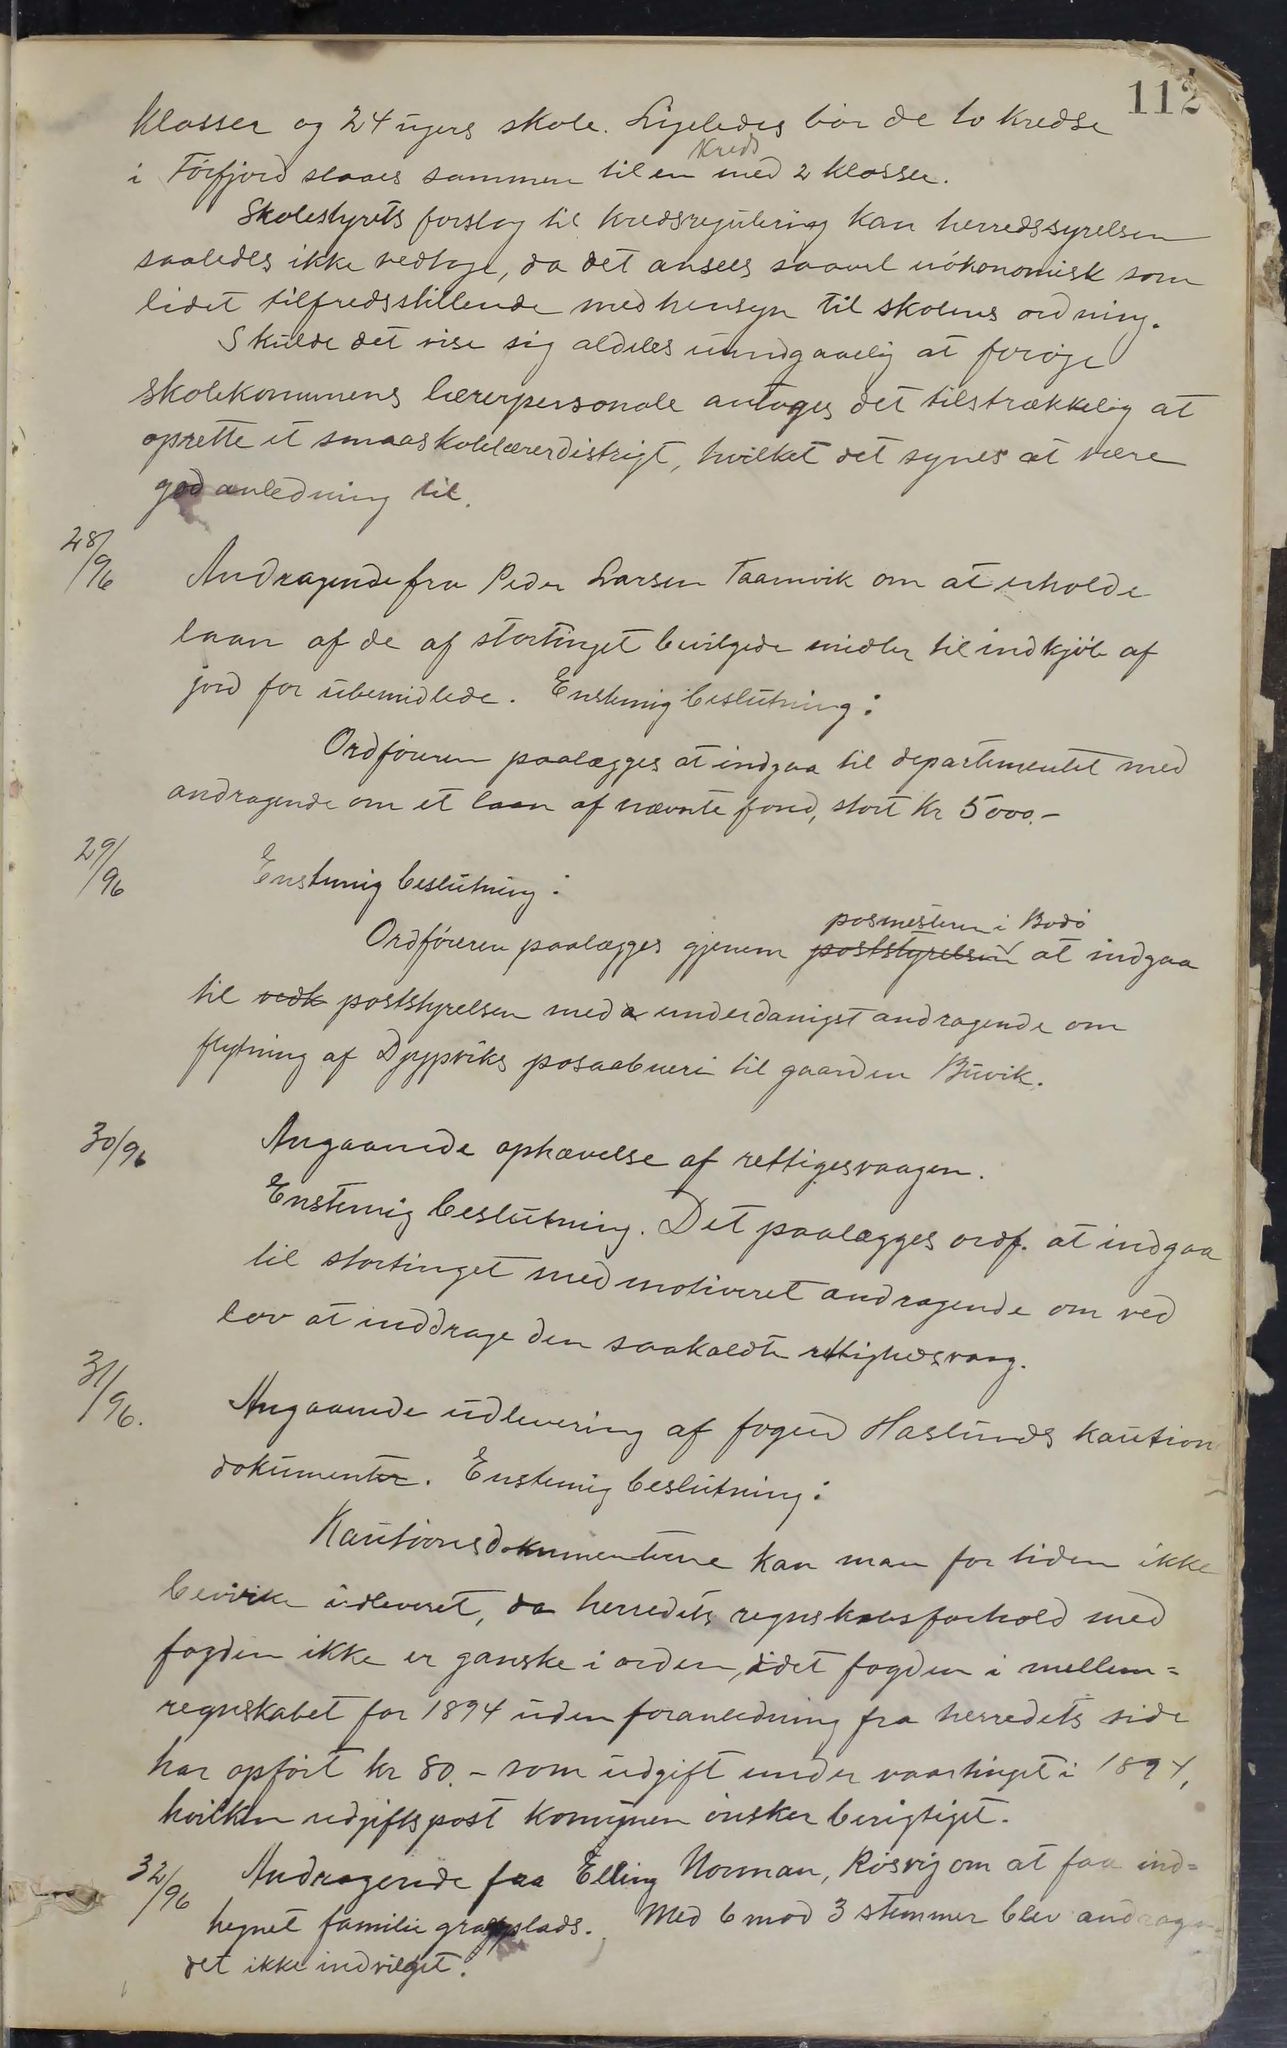 112
klasser og 24 ugers skole. Ligeledes bör de to kredse
kreds
i Törfjord slaaes sammen til en med 2 klasser.
Skolestyrets forslag til kredsregulering kan herredssyrelsen
saaledes ikke vedtage, da det ansees saavel uökonomisk som
lidet tilfredsstillende med hensyn til skolens ordning.
Skulde det vise sig aldeles uundgaaelig at foröge
skolekommunens lærerpersonale antages det tilstrækkelig at
oprette et smaaskolelærerdistrigt, hvilket det synes at være
god anledning til.
28/96 Andragende fra Peder Larsen Taarnvik om at erholde
laan af de af stortinget bevilgede midler til indkjöb af
jord for ubemidlede. Enstemig beslutning:
Ordföreren paalægges at indgaa til departementet med
andragende om et laan af nævnte fond, stort kr 5000.-
29/96 Enstemig beslutning:
posmesteren i Bodö
Ordföreren paalægges gjenem poststyrelsen at indgaa
til vedk poststyrelsen med underdanigst andragende om
flytning af Djypviks posaabneri til gaarden Buvik.
30/96 Angaaende ophævelse af rettigesvaagen.
Enstemig beslutning. Det paalægges ordf. at indgaa
til stortinget med motiveret andragende om ved
lov at inddrage den saakaldte rettighedsvaag.
31/96. Angaaende udlevering af foged Haslunds kaution
dokumenter. Enstemig beslutning:
Kautionsdokumenterne kan man for tiden ikke
bevirke udleveret, da herredets regnskabsforhold med
fogden ikke er ganske i orden, idet fogden i mellem=
regnskabet for 1894 uden foranledning fra herredets side
har opfört kr 80.- som udgift under vaartinget i 1894,
hvilken udgiftspost komunen önsker berigtiget.
32/96 Andragende fra Elling Norman, Rösvig om at faa ind=
hegnet familie gravplads. Med 6 mod 3 stemmer blev andragen=
det ikke indvilget.